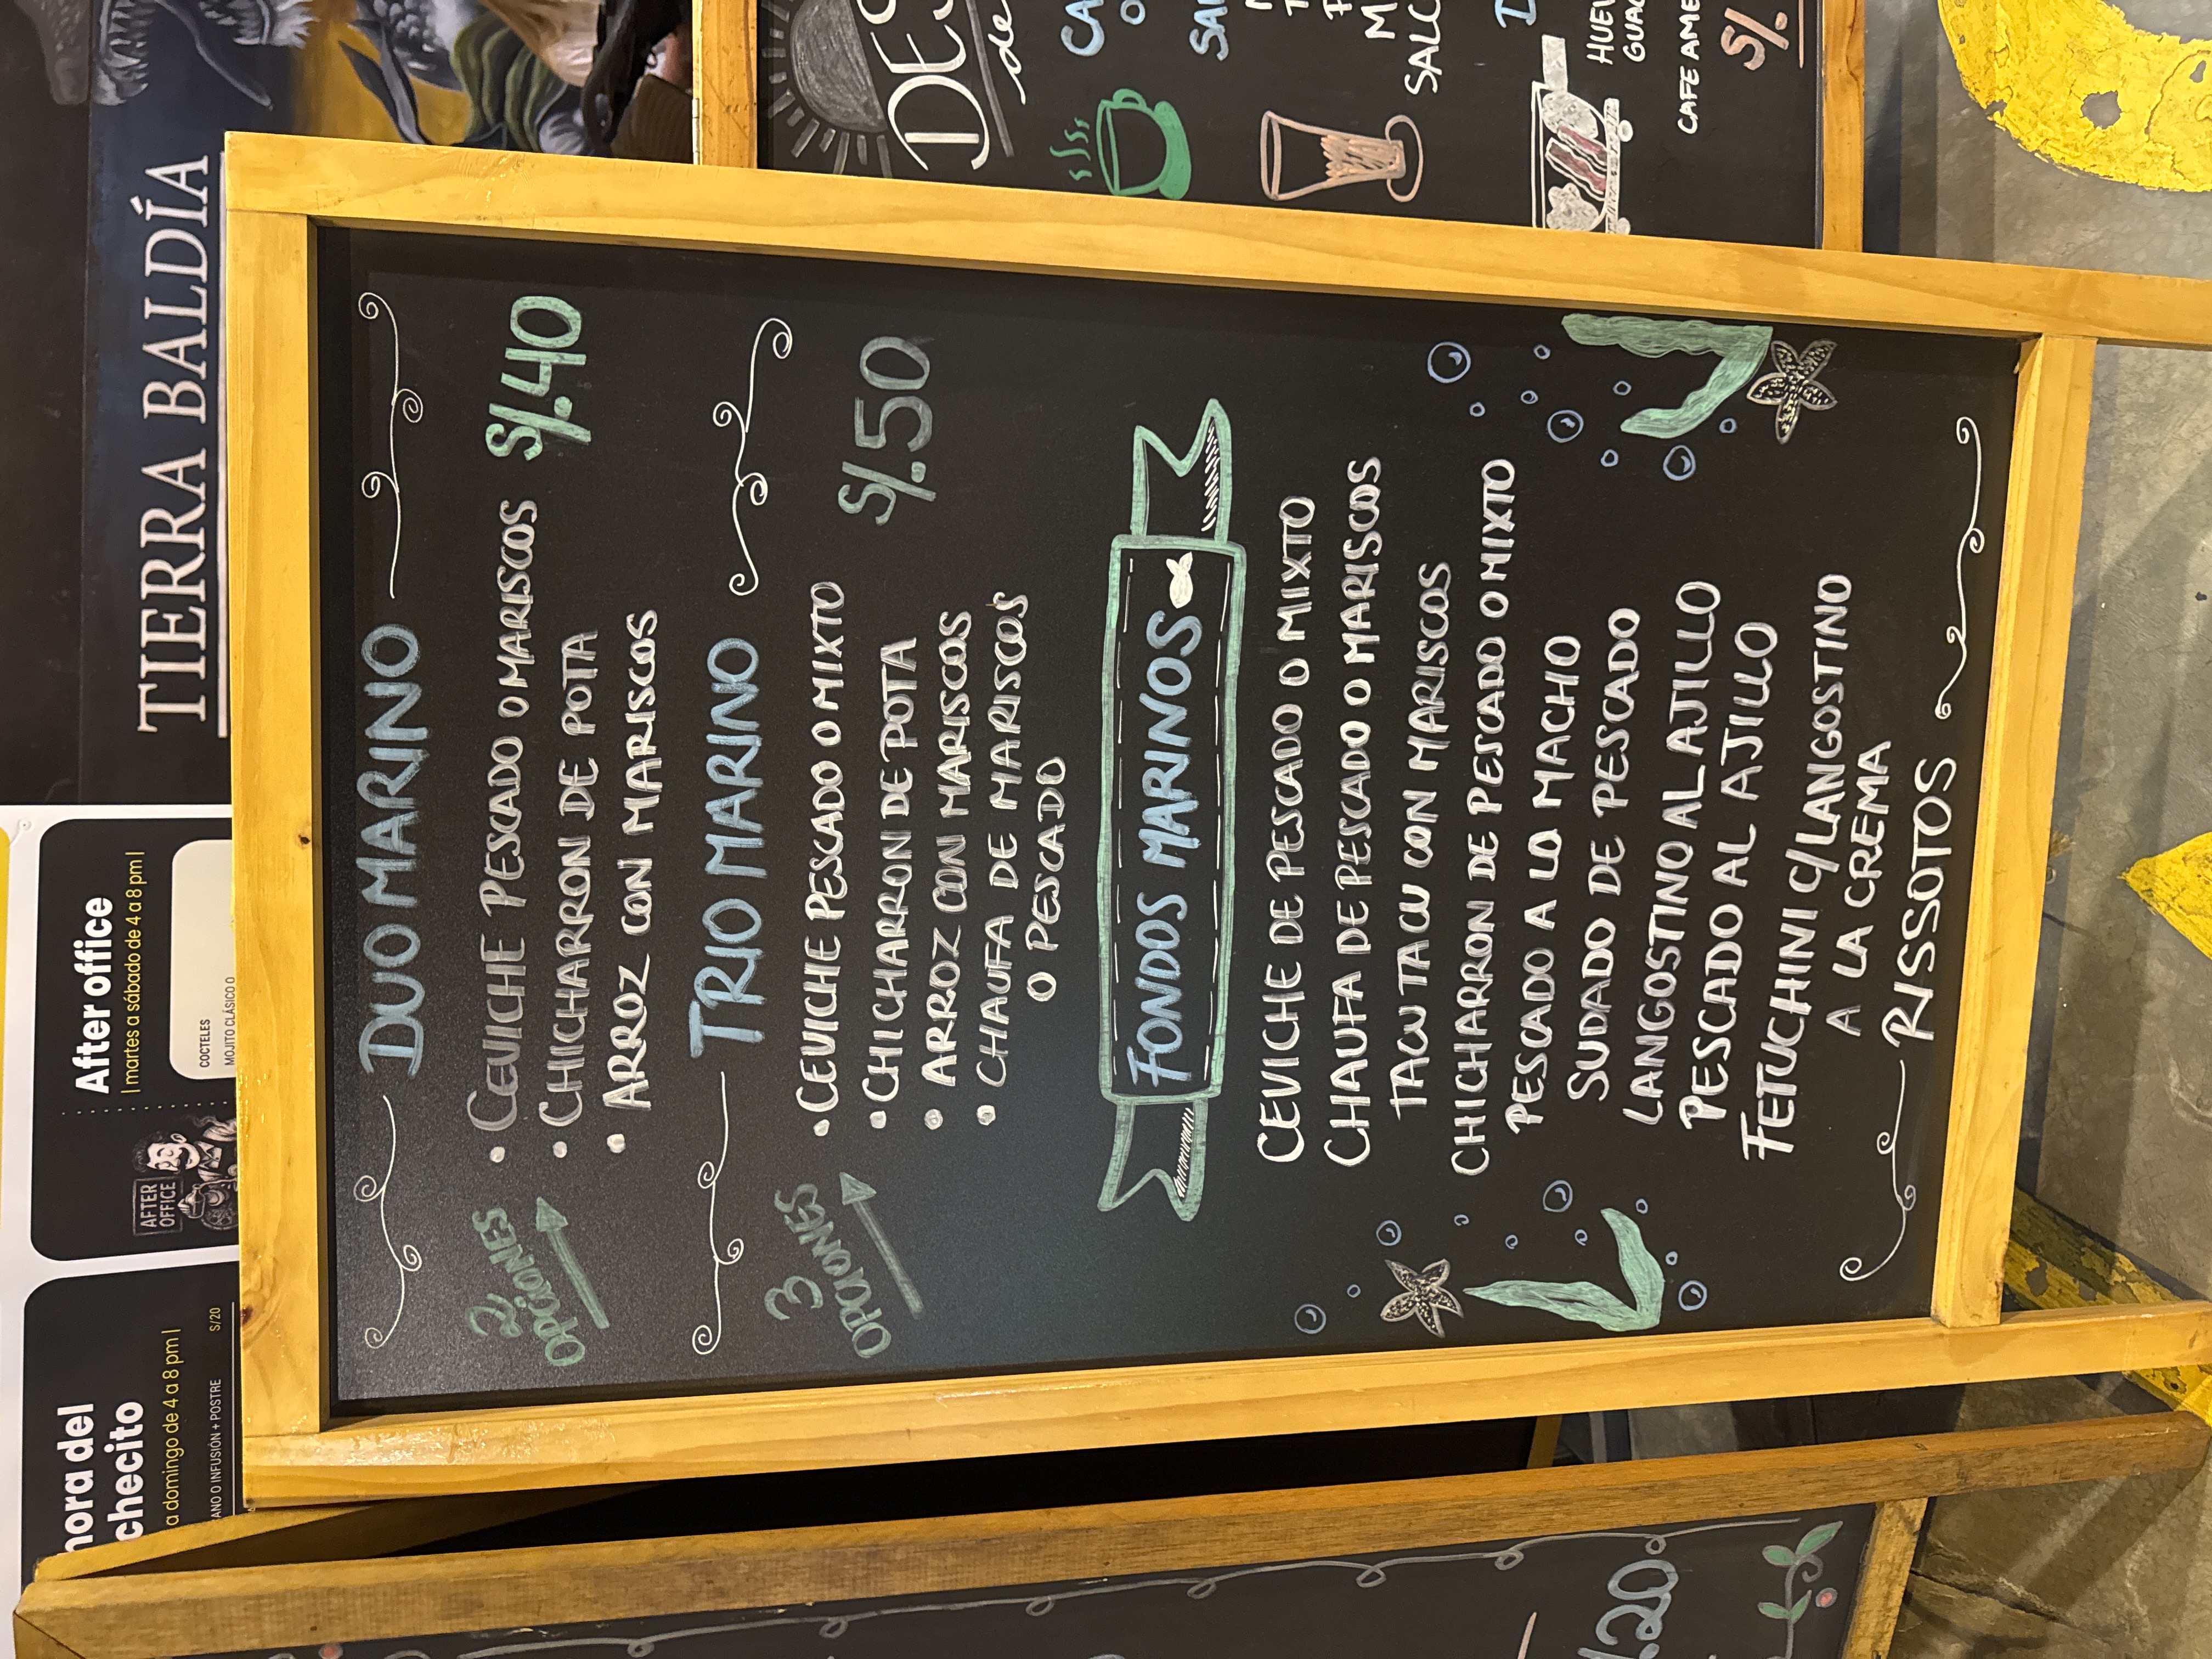 TIERRA BALDÍA
After office
| martes a sábado de 4 a 8 pm |
COCTELES
MOJITO CLÁSICO O
AFTER
OFFICE
hora del
checito
a domingo de 4 a 8 pm |
S/20
ANO O INFUSIÓN + POSTRE
DUO MARINO
2
OPCIONES
• CEVICHE PESCADO O MARISCOS S/.40
• CHICHARRON DE POTA
• ARROZ CON MARISCOS
TRIO MARINO
3
OPCIONES
• CEVICHE PESCADO O MIXTO S/.50
• CHICHARRON DE POTA
• ARROZ CON MARISCOS
• CHAUFA DE MARISCOS
O PESCADO
FONDOS MARINOS
CEVICHE DE PESCADO O MIXTO
CHAUFA DE PESCADO O MARISCOS
TACU TACU CON MARISCOS
CHICHARRON DE PESCADO O MIXTO
PESCADO A LO MACHO
SUDADO DE PESCADO
LANGOSTINO AL AJILLO
PESCADO AL AJILLO
FETUCHINI C/LANGOSTINO
A LA CREMA
RISSOTOS
DES
de
CA
SAL
HUEV
GUAC
CAFE AME
S/.
.20